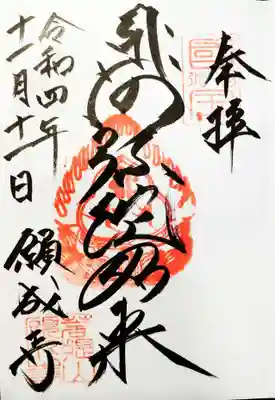 奉拝
阿弥陀如来
令和四年
十一月十一日
願成寺